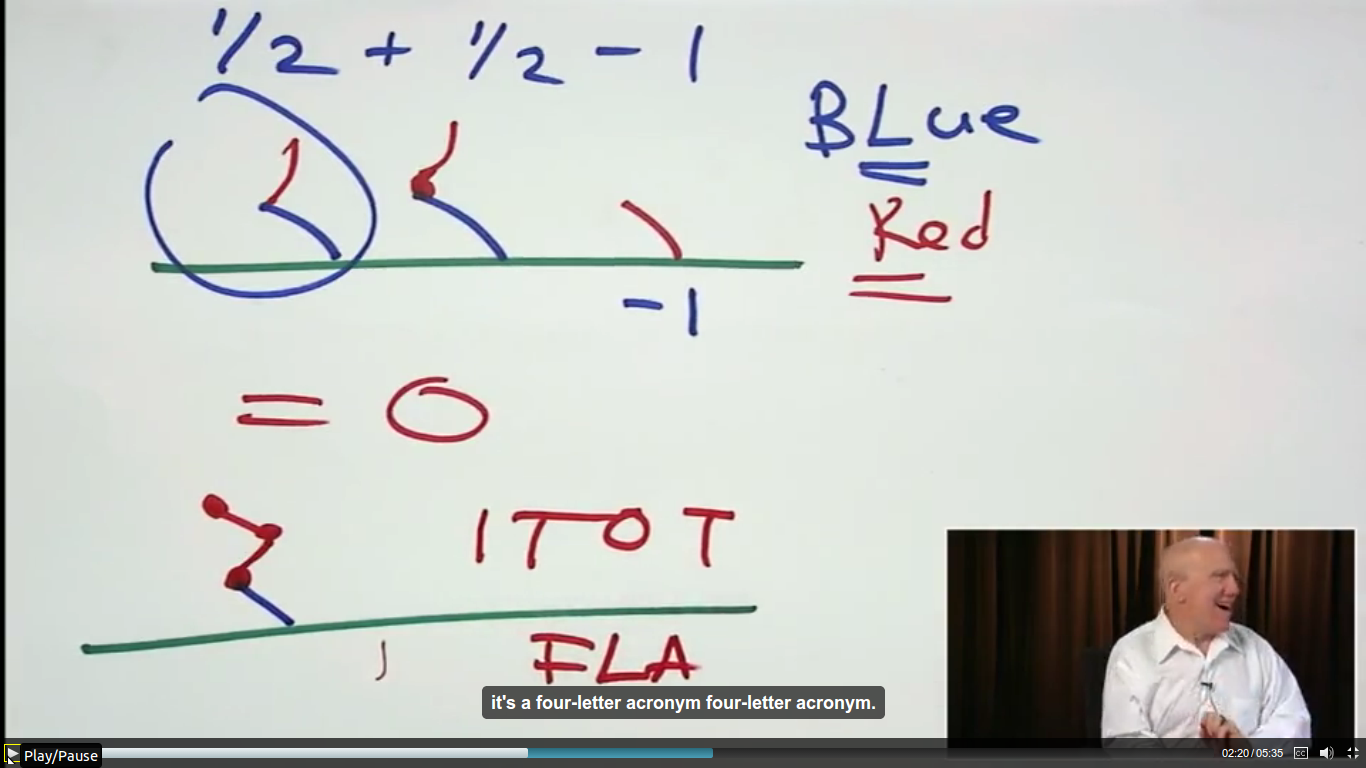 1/2 + 1/2 - 1
BLue
Red
-1
= 0
ITOT
FLA
it's a four-letter acronym four-letter acronym.
Play/Pause
02:20/05:35
CC